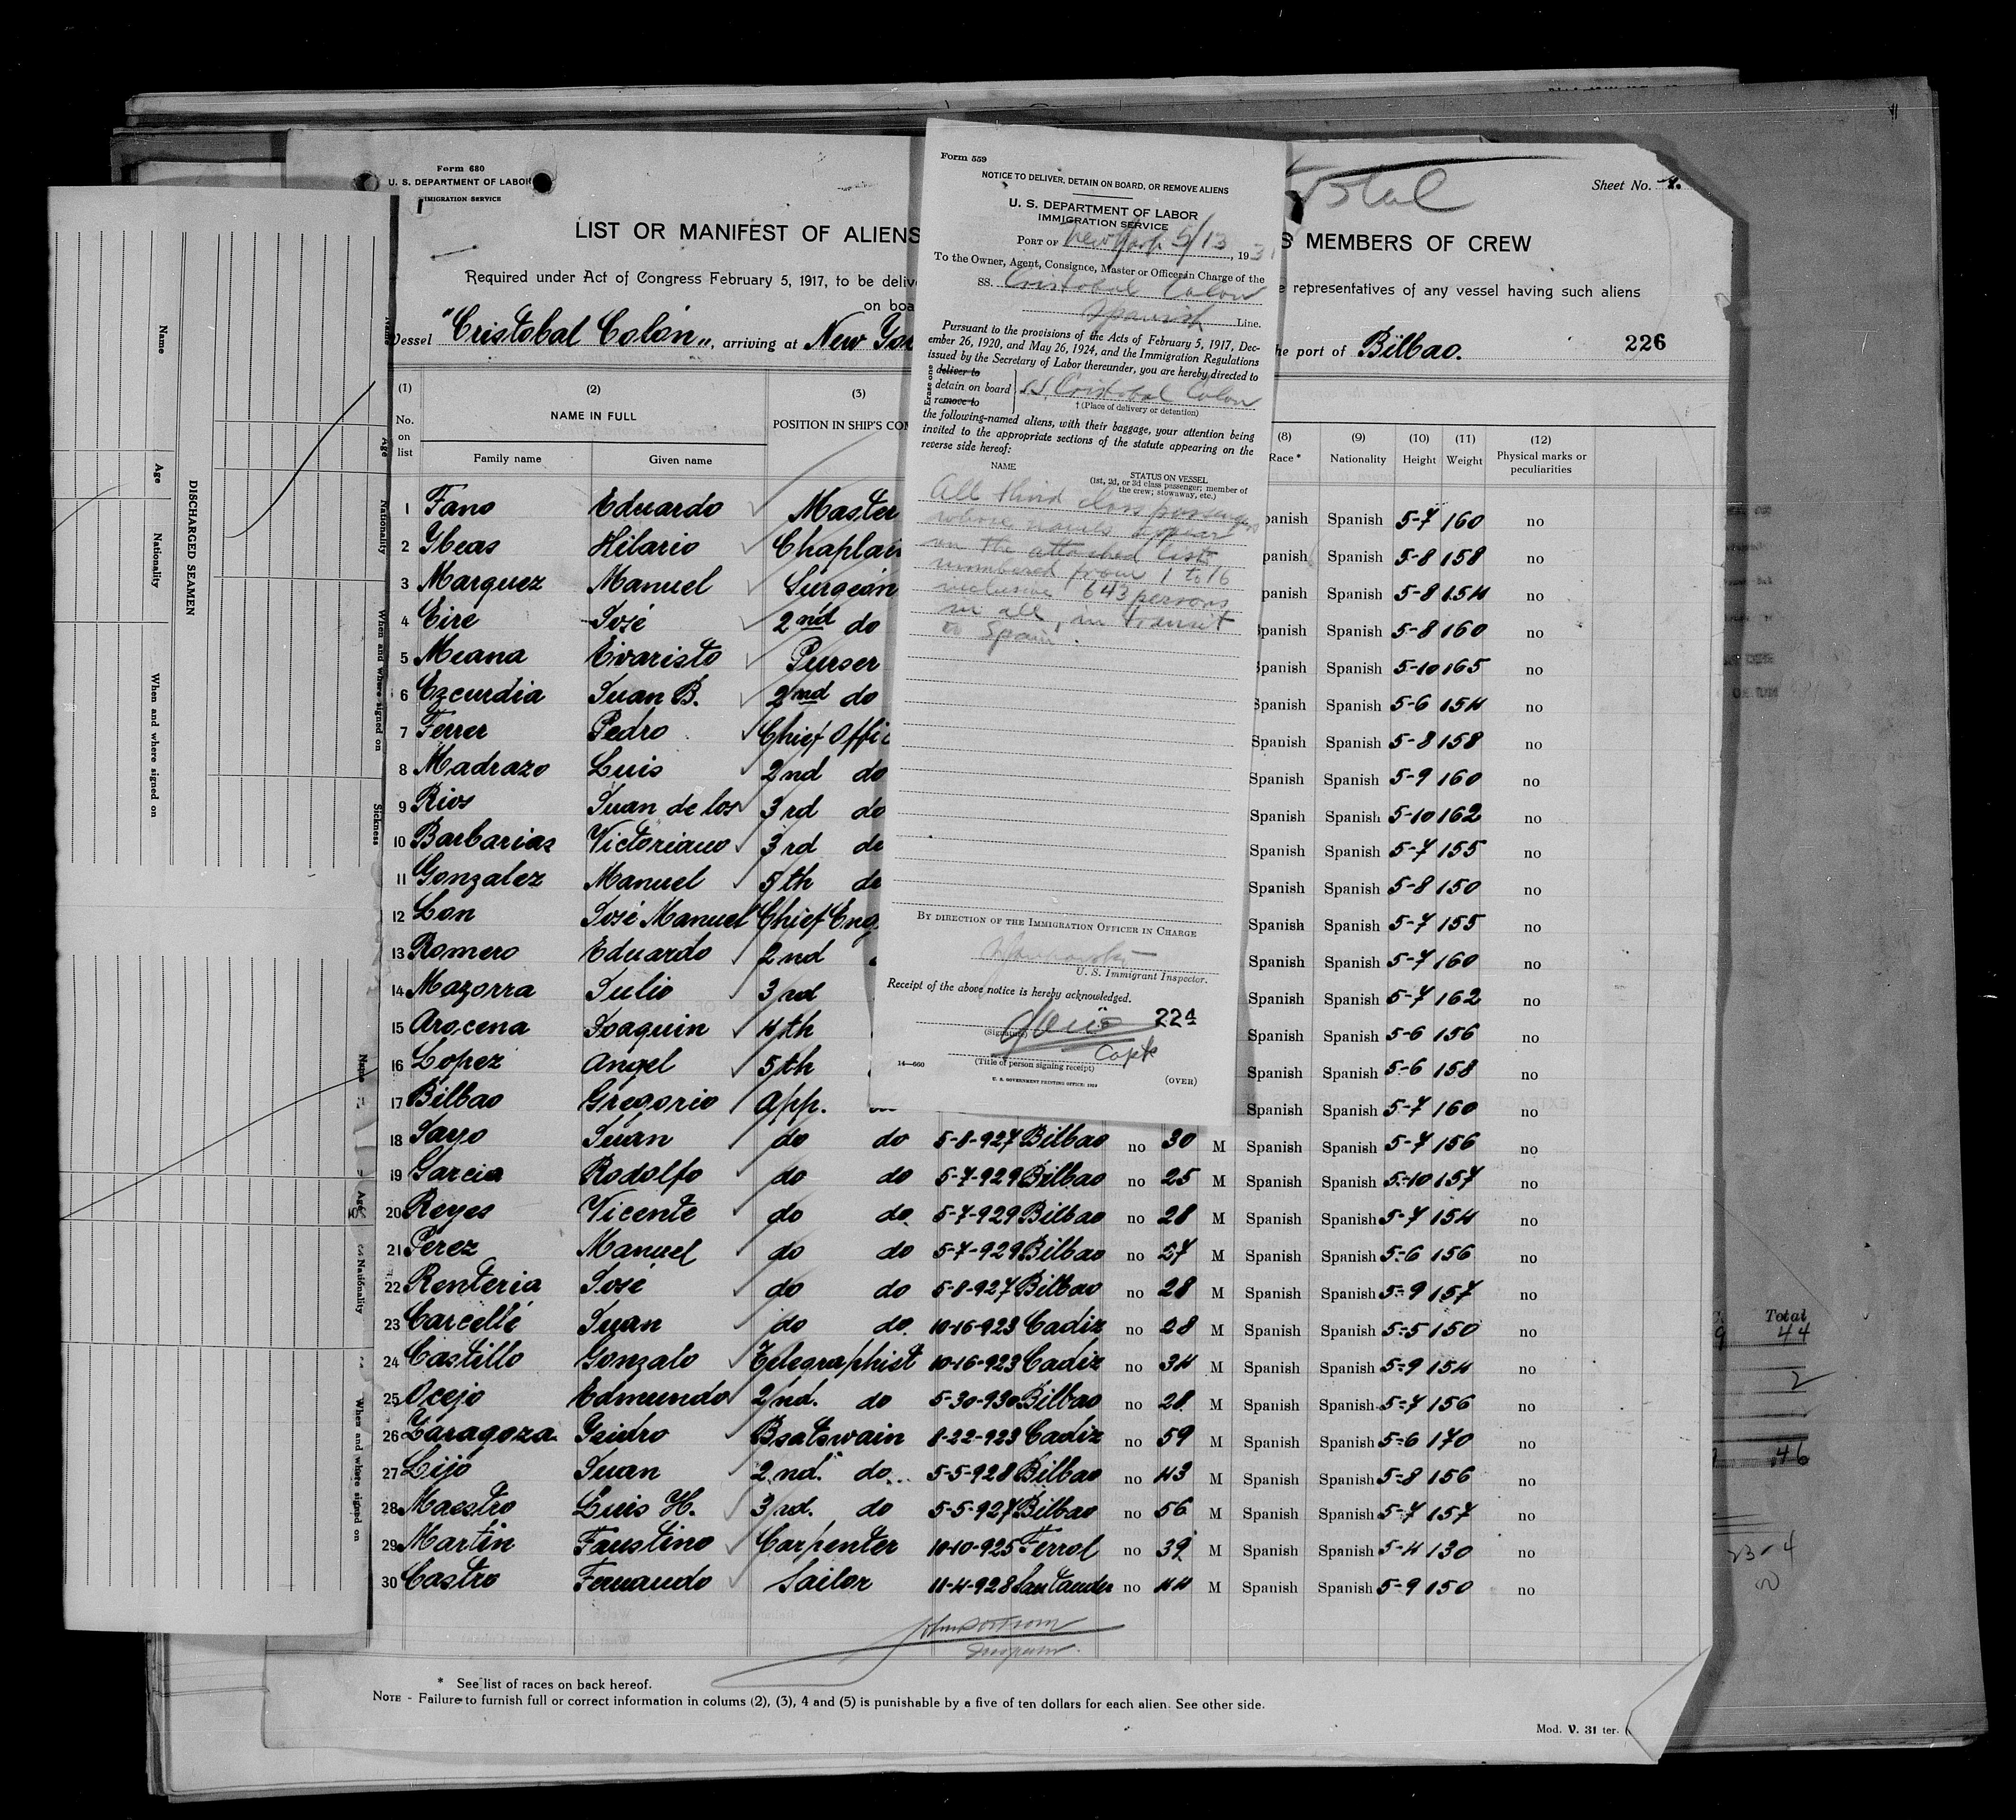 Form 680
U. S. DEPARTMENT OF LABOR
IMMIGRATION SERVICE
Sheet No. 1.
LIST OR MANIFEST OF ALIENS
S MEMBERS OF CREW
Required under Act of Congress February 5, 1917, to be delive
e representatives of any vessel having such aliens
on boa
Vessel "Cristobal Colón", arriving at New Yor
he port of Bilbao.
226
(1) No. on list
(2) NAME IN FULL
Family name Given name
(3) POSITION IN SHIP'S COM
(8) Race *
(9) Nationality
(10) Height
(11) Weight
(12) Physical marks or peculiarities
1 Fano Eduardo Master panish Spanish 5-7 160 no
2 Ybeas Hilario Chaplain panish Spanish 5-8 158 no
3 Marquez Manuel Surgeon panish Spanish 5-8 154 no
4 Eire José 2nd do Spanish Spanish 5-8 160 no
5 Meana Evaristo Purser Spanish Spanish 5-10 165 no
6 Ezcurdia Juan B. 2nd do Spanish Spanish 5-6 154 no
7 Ferrer Pedro Chief Offic Spanish Spanish 5-8 158 no
8 Madrazo Luis 2nd do Spanish Spanish 5-9 160 no
9 Rios Juan de los 3rd do Spanish Spanish 5-10 162 no
10 Barbarias Victoriano 3rd do Spanish Spanish 5-7 155 no
11 Gonzalez Manuel 5th do Spanish Spanish 5-8 150 no
12 Lon José Manuel Chief Eng. Spanish Spanish 5-7 155 no
13 Romero Eduardo 2nd Spanish Spanish 5-7 160 no
14 Mazorra Julio 3rd Spanish Spanish 5-7 162 no
15 Arocena Joaquin 4th Spanish Spanish 5-6 156 no
16 Lopez Angel 5th Spanish Spanish 5-6 158 no
17 Bilbao Gregorio App. Spanish Spanish 5-7 160 no
18 Sayo Juan do do 5-8-927 Bilbao no 30 M Spanish Spanish 5-7 156 no
19 Garcia Rodolfo do do 5-7-929 Bilbao no 25 M Spanish Spanish 5-10 157 no
20 Reyes Vicente do do 5-7-929 Bilbao no 28 M Spanish Spanish 5-7 154 no
21 Perez Manuel do do 5-7-929 Bilbao no 27 M Spanish Spanish 5-6 156 no
22 Renteria José do do 5-8-927 Bilbao no 28 M Spanish Spanish 5-9 157 no
23 Carcellé Juan do do 10-16-923 Cadiz no 28 M Spanish Spanish 5-5 150 no
24 Castillo Gonzalo Telegraphist 10-16-923 Cadiz no 34 M Spanish Spanish 5-9 154 no
25 Ocejo Edmundo 2nd. do 5-30-930 Bilbao no 28 M Spanish Spanish 5-7 156 no
26 Zaragoza Ysidro Boatswain 8-22-923 Cadiz no 59 M Spanish Spanish 5-6 170 no
27 Lijo Juan 2nd. do 5-5-928 Bilbao no 43 M Spanish Spanish 5-8 156 no
28 Maestro Luis H. 3rd. do 5-5-927 Bilbao no 56 M Spanish Spanish 5-7 157 no
29 Martin Faustino Carpenter 10-10-925 Ferrol no 39 M Spanish Spanish 5-4 130 no
30 Castro Fernando Sailor 11-4-928 Santander no 44 M Spanish Spanish 5-9 150 no
* See list of races on back hereof.
NOTE - Failure to furnish full or correct information in colums (2), (3), 4 and (5) is punishable by a five of ten dollars for each alien. See other side.
Mod. V. 31 ter.
Form 559
NOTICE TO DELIVER, DETAIN ON BOARD, OR REMOVE ALIENS
U. S. DEPARTMENT OF LABOR
IMMIGRATION SERVICE
PORT OF New York 5/13, 1931
To the Owner, Agent, Consignee, Master or Officer in Charge of the
SS. Cristobal Colon
Spanish Line.
Pursuant to the provisions of the Acts of February 5, 1917, Dec-
ember 26, 1920, and May 26, 1924, and the Immigration Regulations
issued by the Secretary of Labor thereunder, you are hereby directed to
Erase one
deliver to
detain on board
remove to
s.s. Cristobal Colon
† (Place of delivery or detention)
the following-named aliens, with their baggage, your attention being
invited to the appropriate sections of the statute appearing on the
reverse side hereof:
NAME
STATUS ON VESSEL
(1st, 2d, or 3d class passenger; member of
the crew; stowaway, etc.)
All third class passengers
whose names appear
on the attached lists
numbered from 1 to 16
inclusive 643 persons
in all, in transit
to Spain.
BY DIRECTION OF THE IMMIGRATION OFFICER IN CHARGE
U. S. Immigrant Inspector.
Receipt of the above notice is hereby acknowledged.
224
(Signature)
Capt
(Title of person signing receipt)
14—660
U. S. GOVERNMENT PRINTING OFFICE: 1929
(OVER)
DISCHARGED SEAMEN
Name
Age
Nationality
When and where signed on
Name
Age
Nationality
When and where signed on
Sickness
Name
Age
Nationality
When and where signed on
Total
44
2
46